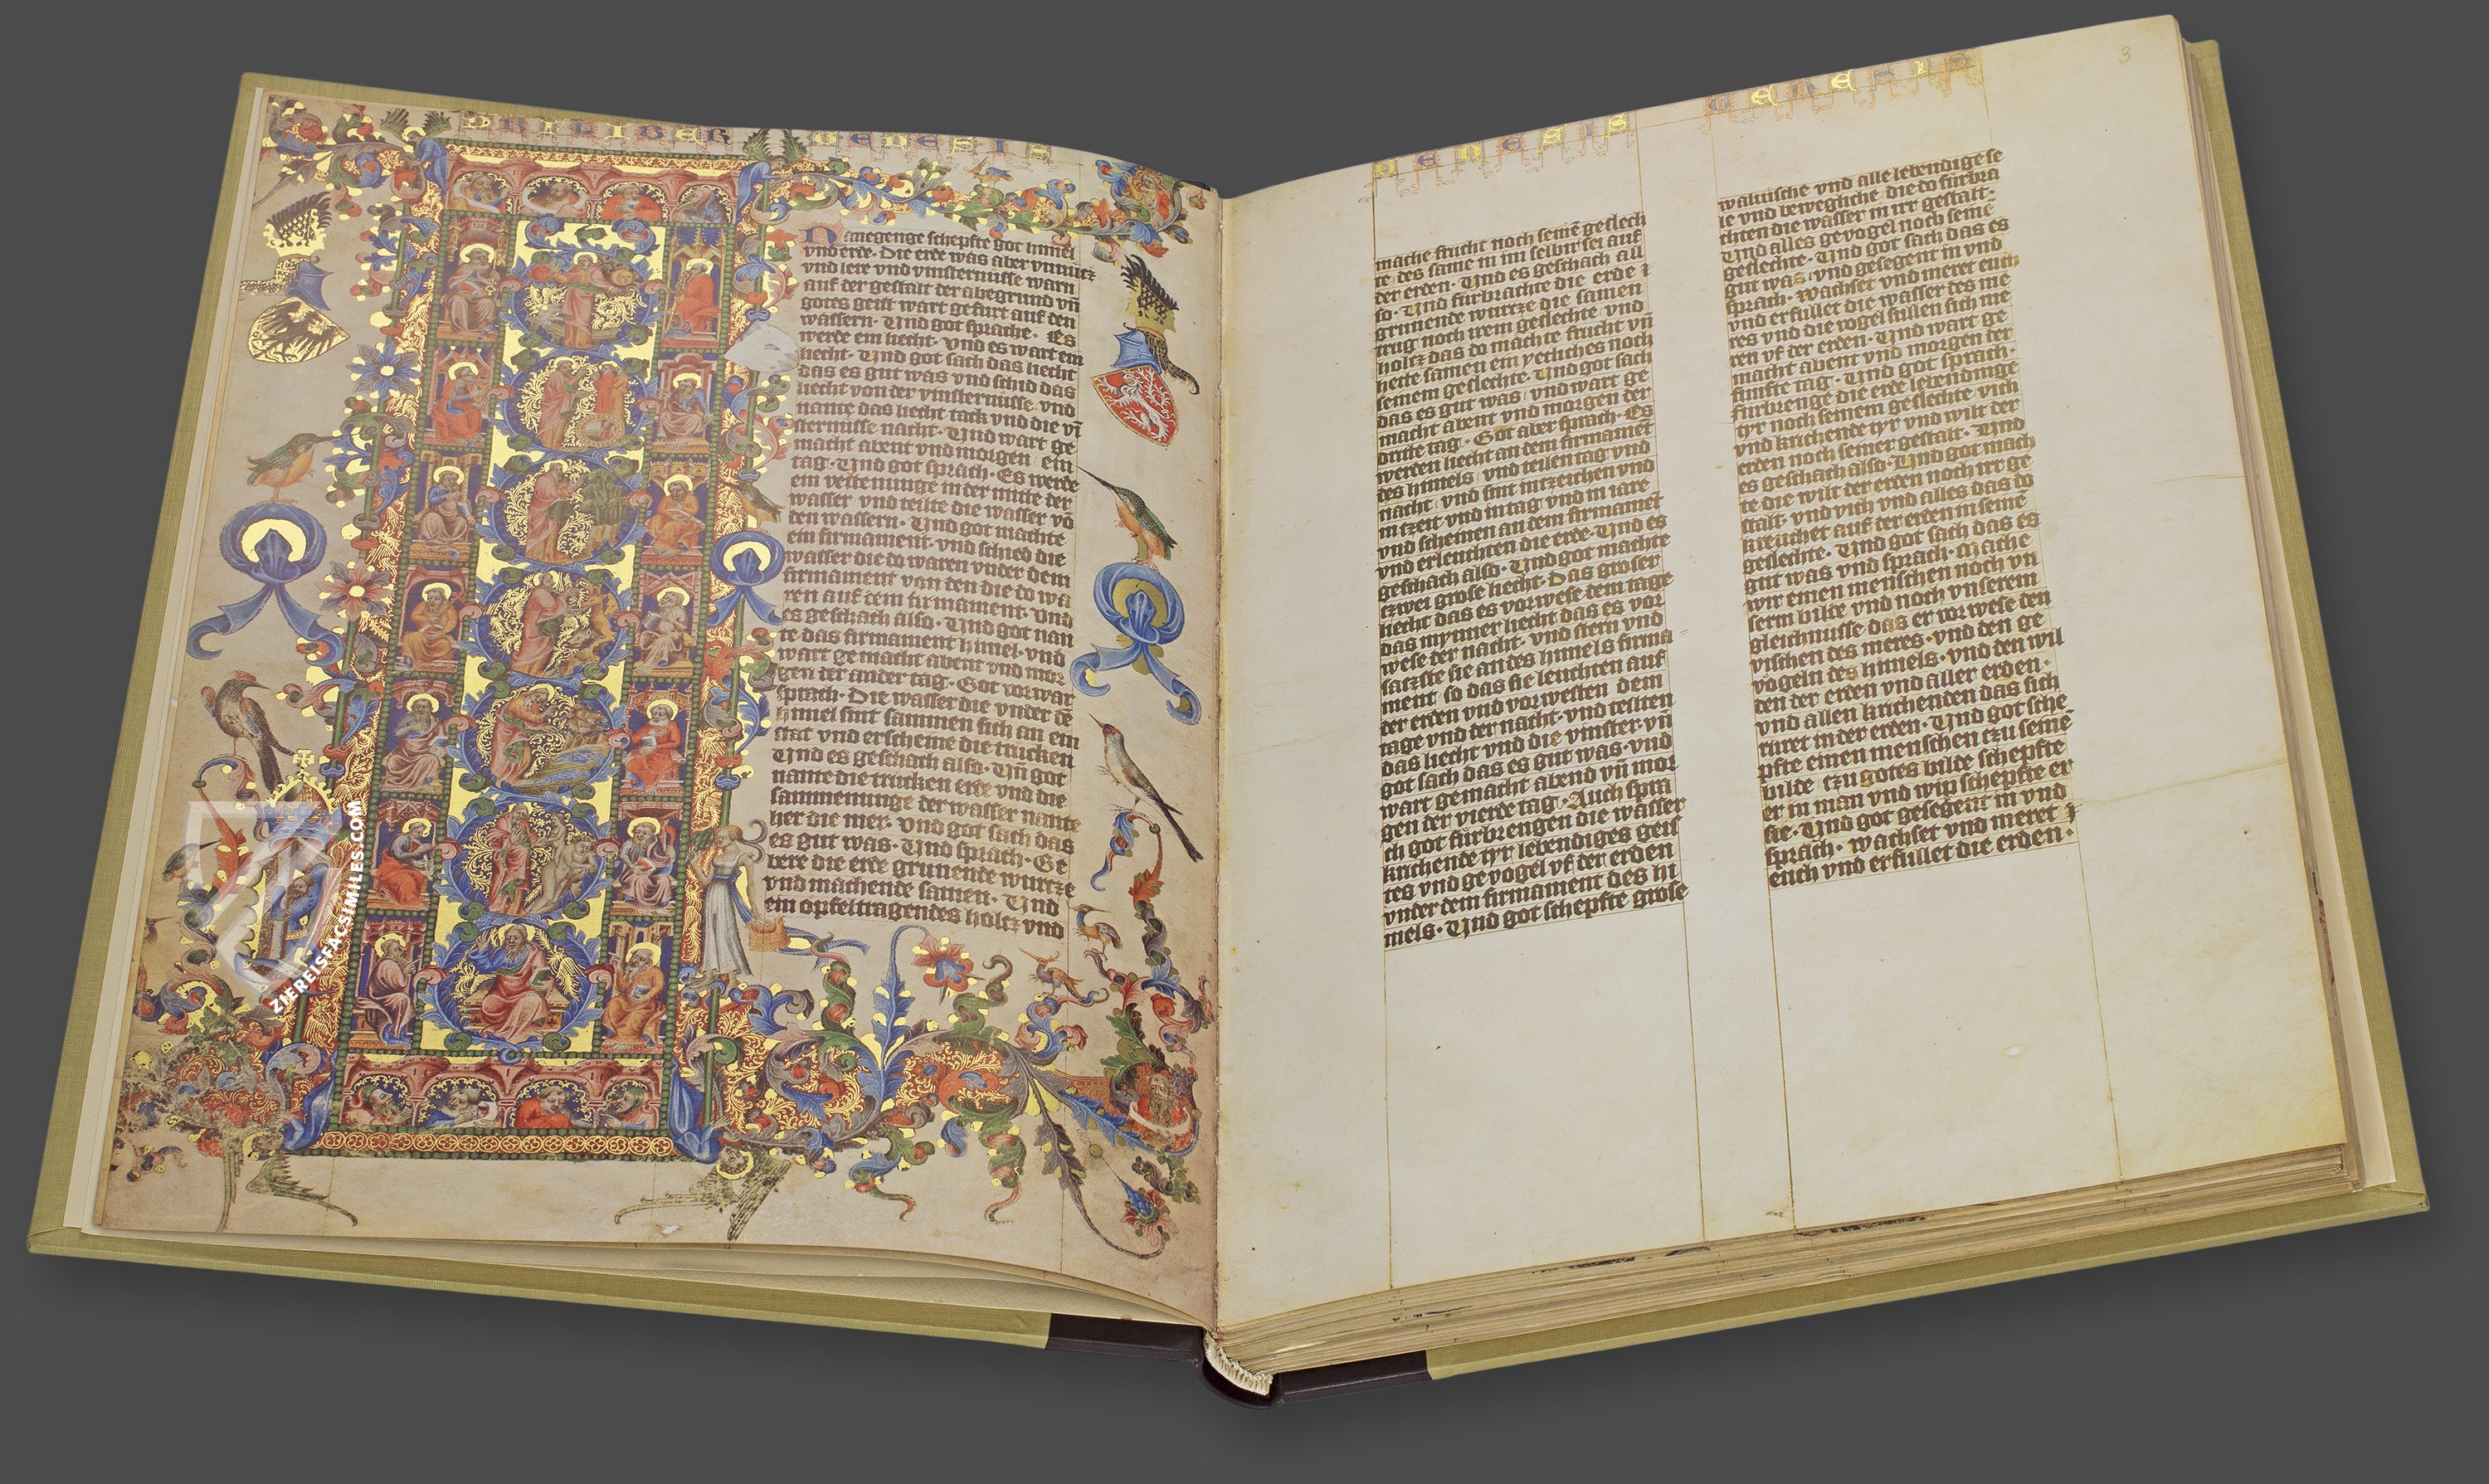 PRI LIBER GENESIS
Nanegenge schepfte got himel
vnd erde. Die erde was aber vnnutz
vnd lere vnd vinsternisse warn
auf der gestalt der abegrund vn̄
gotes geist wart gefurt auf den
wassern. Und got sprache. Es
werde ein liecht. vnd es wart ein
liecht. Und got sach das liecht
das es gut was vnd schid das
liecht von der vinsternisse. vnd
nante das liecht tack vnd die vī
sternisse nacht. Und wart ge
macht abent vnd morgen ein
tag. Und got sprach. Es werde
ein vestenunge in der mitte der
wasser vnd teilte die wasser vō
den wassern. Und got machte
ein firmament. vnd schied die
wasser die do waren vnder dem
firmament van den die do wa
ren auf dem firmament. vnd
es geschach also. Und got nan
te das firmament himel. vnd
wart gemacht abent vnd mor
gen der ander tag. Got vorwar
sprach. Die wasser die vnder dē
himel sint sammen sich an ein
stat vnd erscheine die trucken
Und es geschach also. Vn̄ got
nante die trucken erde vnd die
sammenunge der wasser nante
her die mer. vnd got sach das
es gut was. Und sprach. Ge
bere die erde grunende wurtze
vnd machende samen. Und
ein opfeltragendes holcz vnd
GENESIS
GENESIS
3
mache frucht noch seinē geslech
te. des same in im selbir sei auf
der erden. Und es geschach all
so. Und furbrachte die erde
grunende wurtze die samen
trug noch irem geslechte vnd
holcz das do machte frucht vn̄
hette samen ein yetliches noch
seinem geslechte. Und got sach
das es gut was vnd wart ge
macht abent vnd morgen der
dritte tag. Got aber sprach. Es
werden liecht an dem firmamēt
des himels vnd teilen tag vnd
nacht vnd sint in tzeichen vnd
in tzeit vnd in tag vnd in iare
vnd scheinen an dem firmamēt
vnd erleuchten die erde. Und es
geschach also. Und got machte
czwei grose liecht. Das groser
liecht das es vorwese dem tage
das mynner liecht das es vor
wese der nacht. vnd stern vnd
satzste sie an des himels firma
ment so das sie leuchten auf
der erden vnd vorwesten dem
tage vnd der nacht. vnd teilten
das liecht vnd die vinster. vn̄
got sach das es gut was. vnd
wart gemacht abend vn̄ mor
gen der vierde tag. Auch spra
ch got furbrengen die wasser
krichende tyr lebendiges geis
tes vnd gevogel vf der erden
vnder dem firmament des hi
mels. Und got schepfte grose
walvische vnd alle lebendige se
le vnd bewegliche die do furbra
chten die wasser in irr gestalt.
Und alles gevogel noch seinē
geslechte. Und got sach das es
gut was. vnd gesegent in vnd
sprach. wachset vnd meret euch
vnd erfullet die wasser des me
res vnd die vogel sullen sich me
ren vf der erden. Und wart ge
macht abent vnd morgen der
funfte tag. Und got sprach.
furbrenge die erde lebendinge
tyr noch seinem geslechte vich
vnd krichende tyr vnd wilt der
erden noch seiner gestalt. Und
es geschach also. Und got mach
te die wilt der erden noch irr ge
stalt. vnd vich vnd alles das do
kreuchet auf der erden in seinē
geslechte. Und got sach das es
gut was vnd sprach. Mache
wir einen menschen noch vn
serm bilde vnd noch vnserem
gleichnusse das er vorwese den
vischen des meres. vnd den ge
vogeln des himels. vnd den wil
den der erden vnd aller erden.
vnd allen krichenden das sich
ruret in der erden. Und got sche
pfte einen menschen czu seinē
bilde czu gotes bilde schepfte
er in man vnd wip schepfte er
sie. Und got gesegent in vnd
sprach. wachset vnd meret
euch vnd erfullet die erden.
ZIEREISFACSIMILES.COM